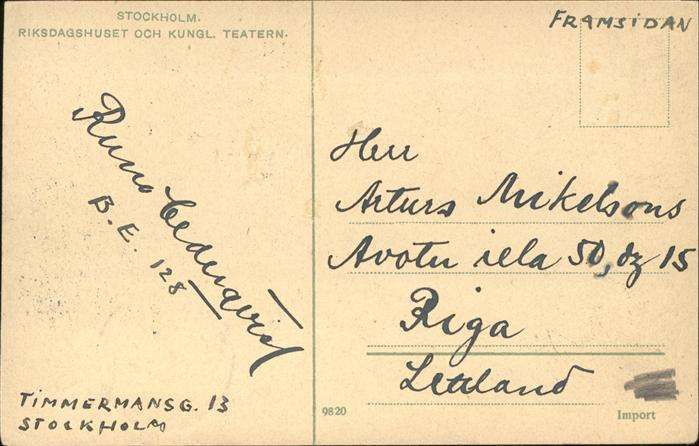 STOCKHOLM.
RIKSDAGSHUSET OCH KUNGL. TEATERN.
Runo Cederqvist
B.E. 128
TIMMERMANSG. 13
STOCKHOLM
FRAMSIDAN
Herr
Arturs Mikelsons
Avotu iela 50, dz 15
Riga
Lettland
9820
Import